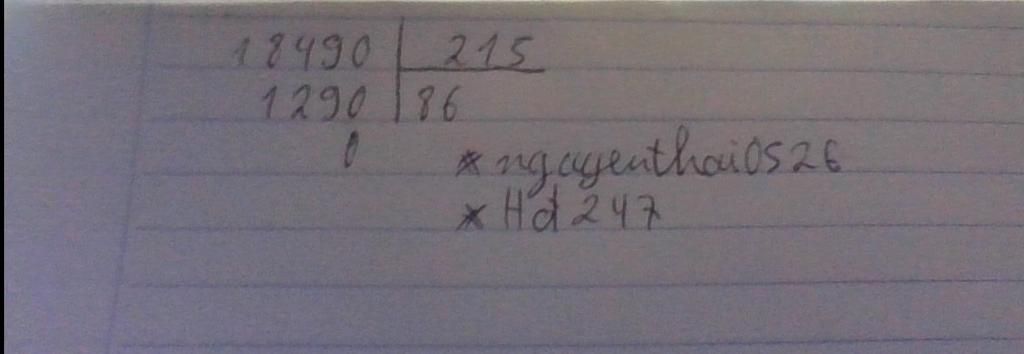 18490 | 215
1290 | 86
0
* nguyenthai0526
* Hd 247